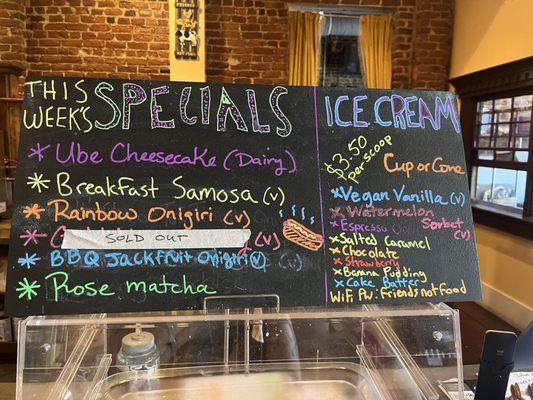 THIS WEEK'S SPECIALS
* Ube Cheesecake (Dairy)
* Breakfast Samosa (v)
* Rainbow Onigiri (v)
SOLD OUT (v)
* BBQ Jackfruit Onigiri (v)
* Rose matcha
ICE CREAM
$3.50 per scoop
Cup or Cone
x Vegan Vanilla (v)
x Watermelon Sorbet (v)
x Espresso
x Salted Caramel
x Chocolate
x Strawberry
x Banana Pudding
x Cake Batter
WiFi PW: Friends not food